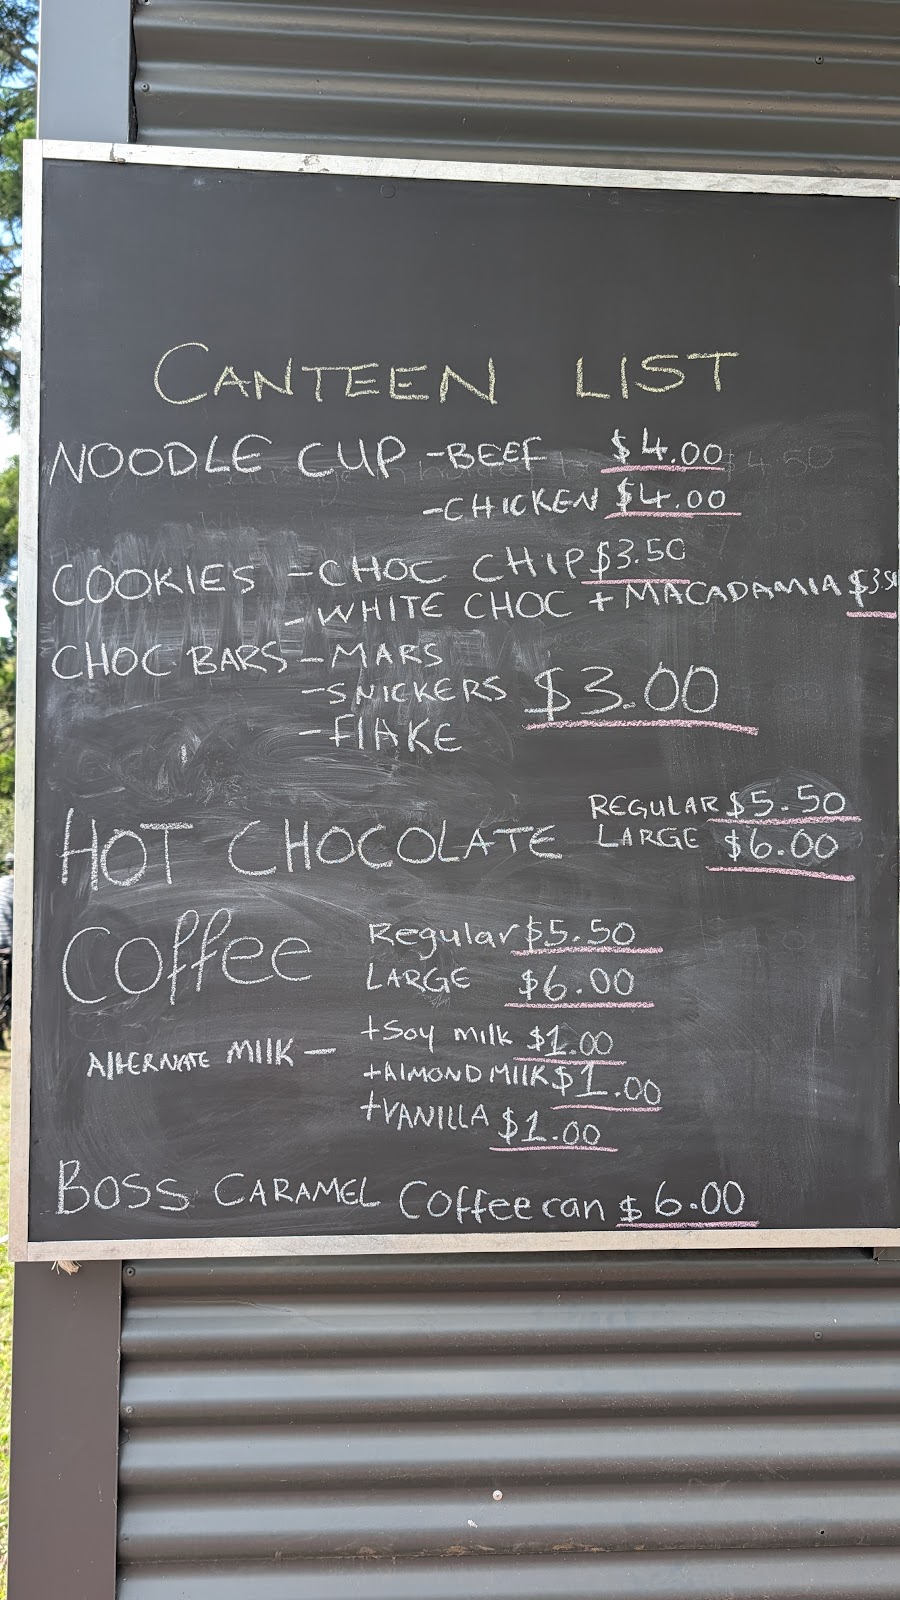 CANTEEN LIST
NOODLE CUP -BEEF $4.00
-CHICKEN $4.00
COOKIES -CHOC CHIP $3.50
-WHITE CHOC + MACADAMIA $3.50
CHOC BARS -MARS
-SNICKERS $3.00
-FlAKE
HOT CHOCOLATE REGULAR $5.50
LARGE $6.00
Coffee Regular $5.50
LARGE $6.00
AlTERNATE MIlK - +Soy milk $1.00
+AlMOND MIlK $1.00
+VANILLA $1.00
BOSS CARAMEL Coffee can $6.00